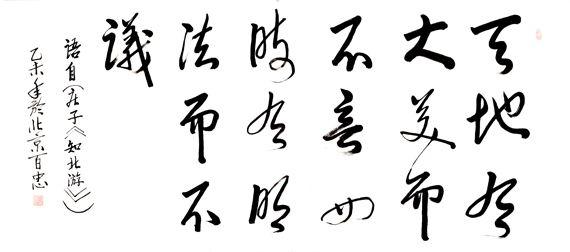 天地有
大美而
不言四
時有明
法而不
議
語自(庄子《知北游》)
乙未年於北京百忠